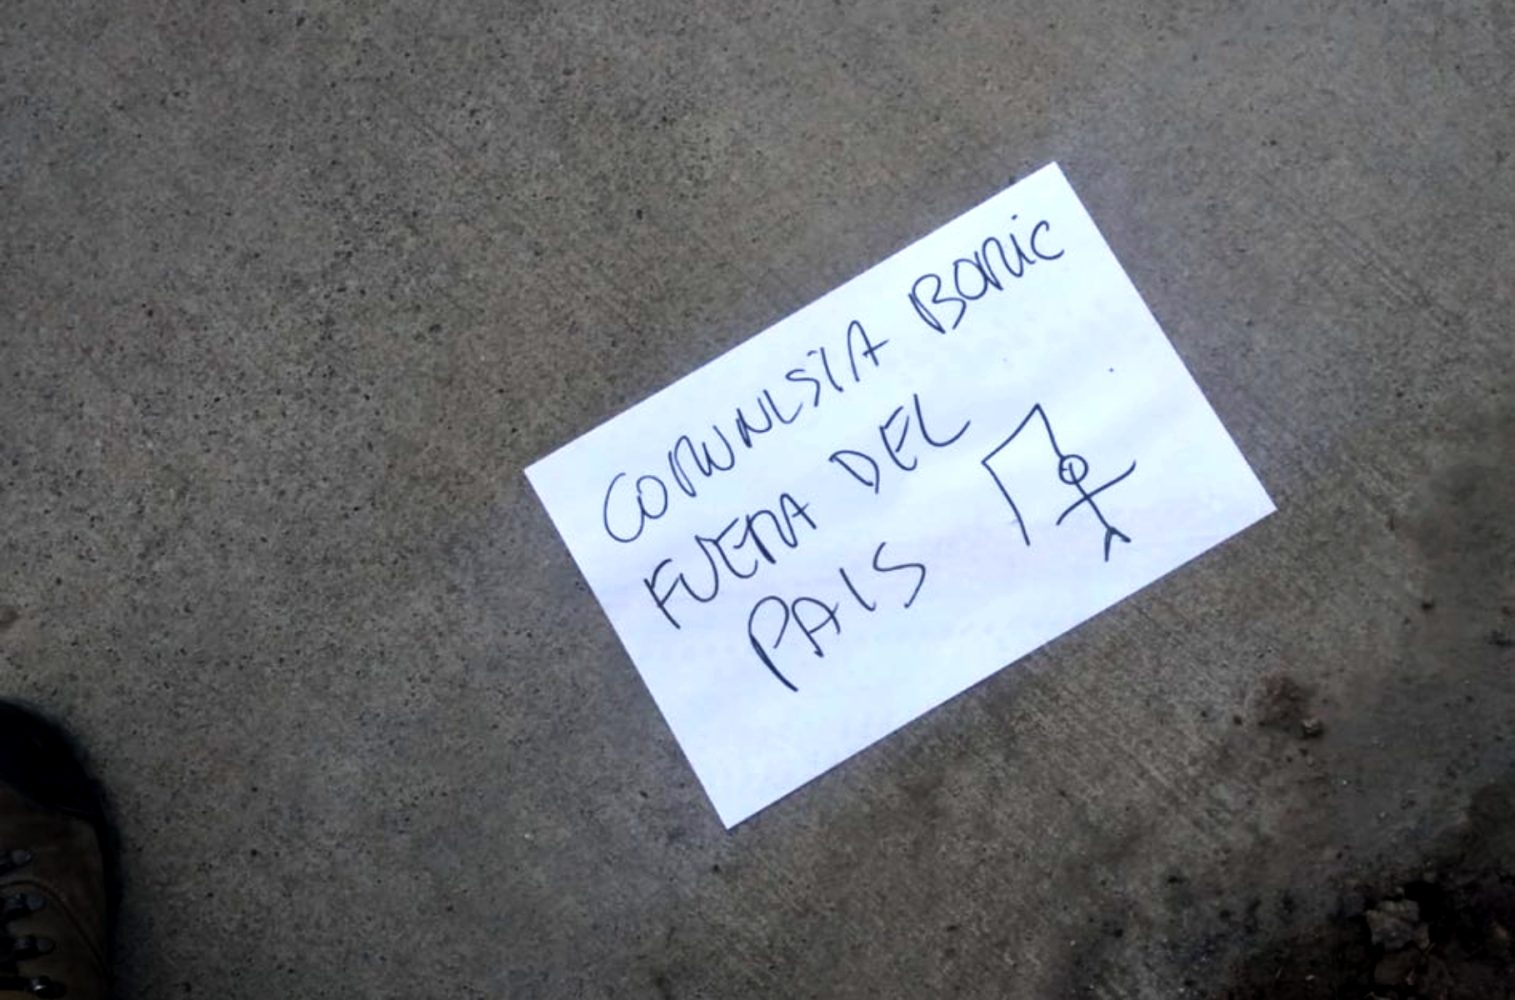 COMUNISTA BORIC
FUERA DEL
PAIS